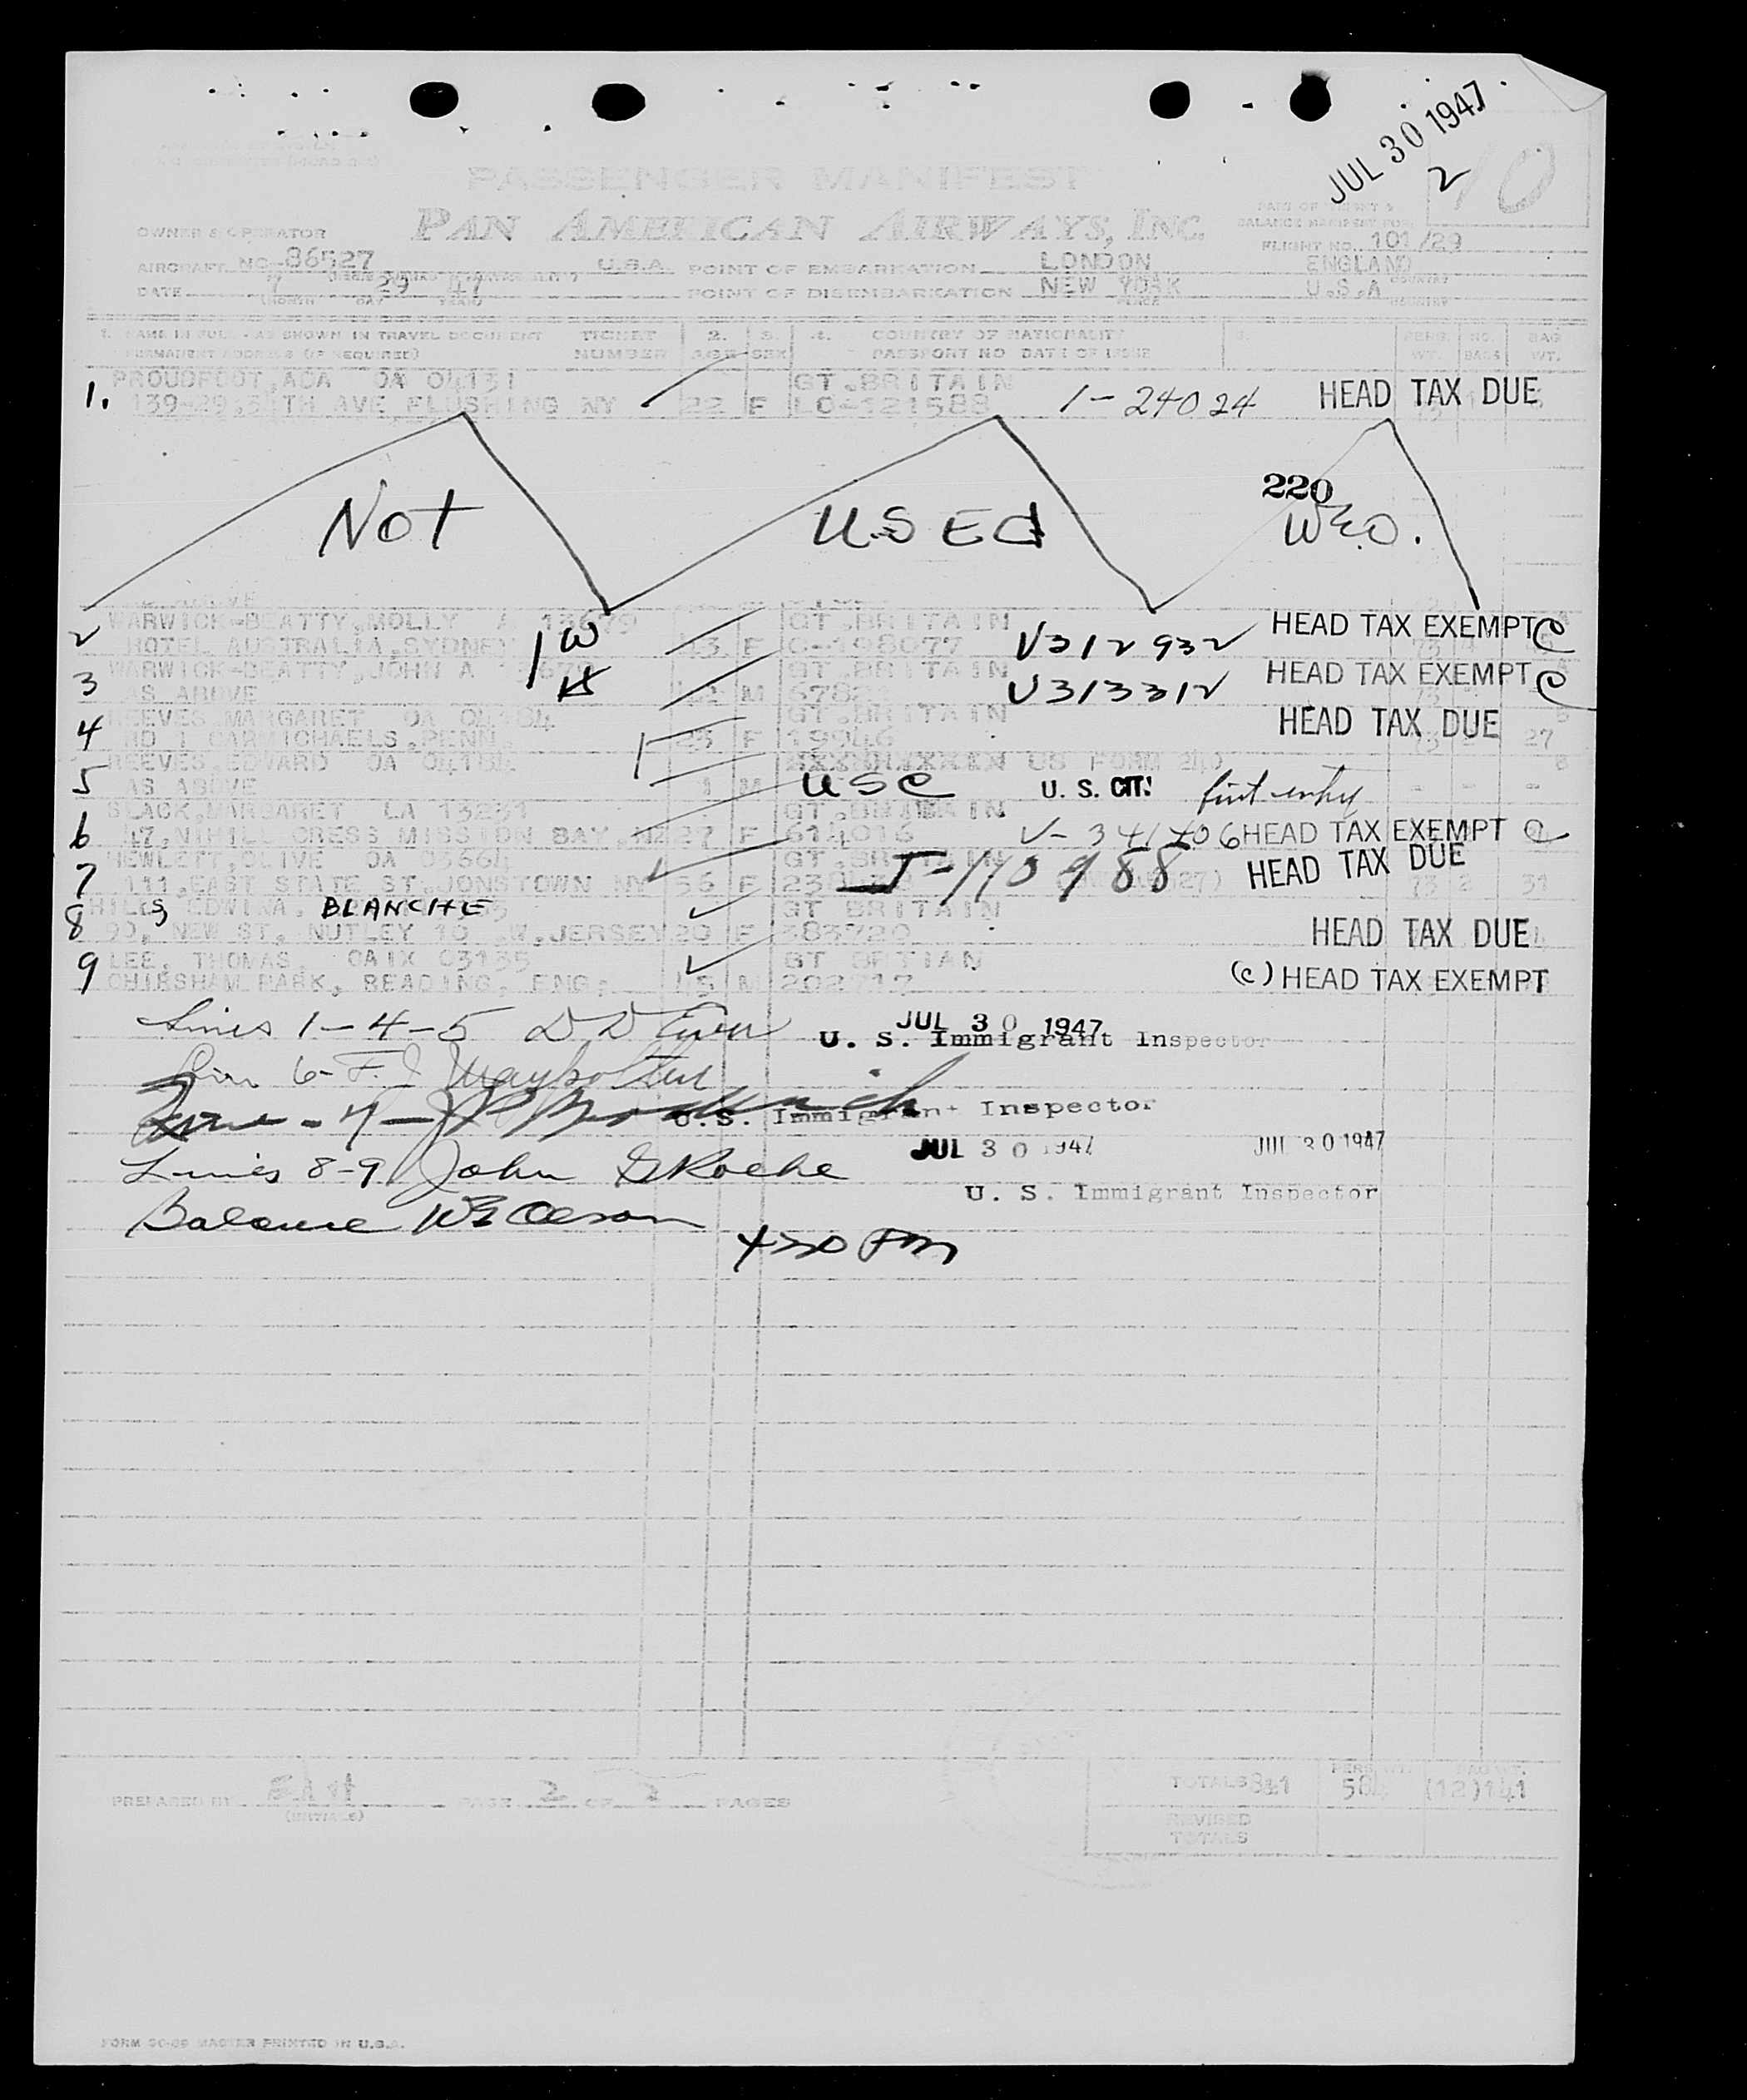 JUL 30 1947
2
10
PASSENGER MANIFEST
PAN AMERICAN AIRWAYS, INC.
OWNER & OPERATOR
BALANCE MANIFEST FOR
FLIGHT NO. 101/29
AIRCRAFT NC-86527 U.S.A. POINT OF EMBARKATION LONDON ENGLAND
DATE 7 29 47 POINT OF DISEMBARKATION NEW YORK U.S.A
(MONTH DAY YEAR) PLACE COUNTRY
1. NAME IN FULL - AS SHOWN IN TRAVEL DOCUMENT TICKET 2. 3. 4. COUNTRY OF NATIONALITY 5. PERS. NO. BAG
PERMANENT ADDRESS (IF REQUIRED) NUMBER AGE SEX PASSPORT NO DATE OF ISSUE WT. BAGS WT.
PROUDFOOT, ADA OA 04131 GT.BRITAIN
1. TH AVE FLUSHING NY 22 F LO-121583 1-24024 HEAD TAX DUE
220
NOT USED WEO.
2 WARWICK-BEATTY,MOLLY A 13679 GT.BRITAIN HEAD TAX EXEMPT C
HOTEL AUSTRALIA,SYDNEY 1 W F C-198077 V312932
3 WARWICK-BEATTY,JOHN A GT.BRITAIN HEAD TAX EXEMPT C
AS ABOVE M V313312
4 REEVES MARGARET OA 04184 GT.BRITAIN HEAD TAX DUE
RD 1 CARMICHAELS,PENN. 23 F 19946 27
5 REEVES,EDWARD OA 04184 US FORM 240
AS ABOVE 1 M USC U. S. CIT: first entry
6 BLACK,MARGARET LA 13231 GT.BRITAIN
47,NIHILL CRESS MISSION BAY,NZ 27 F 614016 V-341406 HEAD TAX EXEMPT C
7 HEWLETT,OLIVE OA 03664 GT.BRITAIN
111,EAST STATE ST.JONSTOWN NY 56 F I-110988 HEAD TAX DUE 31
8 HILLS, EDWINA. BLANCHE GT BRITAIN
90, NEW ST, NUTLEY 10 .W.JERSEY 20 F 383720 HEAD TAX DUE
9 LEE, THOMAS. OAIX 03135 GT BRTIAN
CHIRSHAM PARK, READING, ENG. M 202717 (C) HEAD TAX EXEMPT
Lines 1-4-5 JUL 30 1947
U. S. Immigrant Inspector
Line 6- F.J.
Line - 7 - U.S. Immigrant Inspector
JUL 30 1947 JUL 30 1947
Lines 8-9 John Roche
U. S. Immigrant Inspector
Balance WE Oeson
430 PM
PREPARED BY (INITIALS) PAGE 2 OF 2 PAGES
PERS. WT. BAG WT.
TOTALS 8&1 (12)141
REVISED
TOTALS
MASTER PRINTED IN U.S.A.